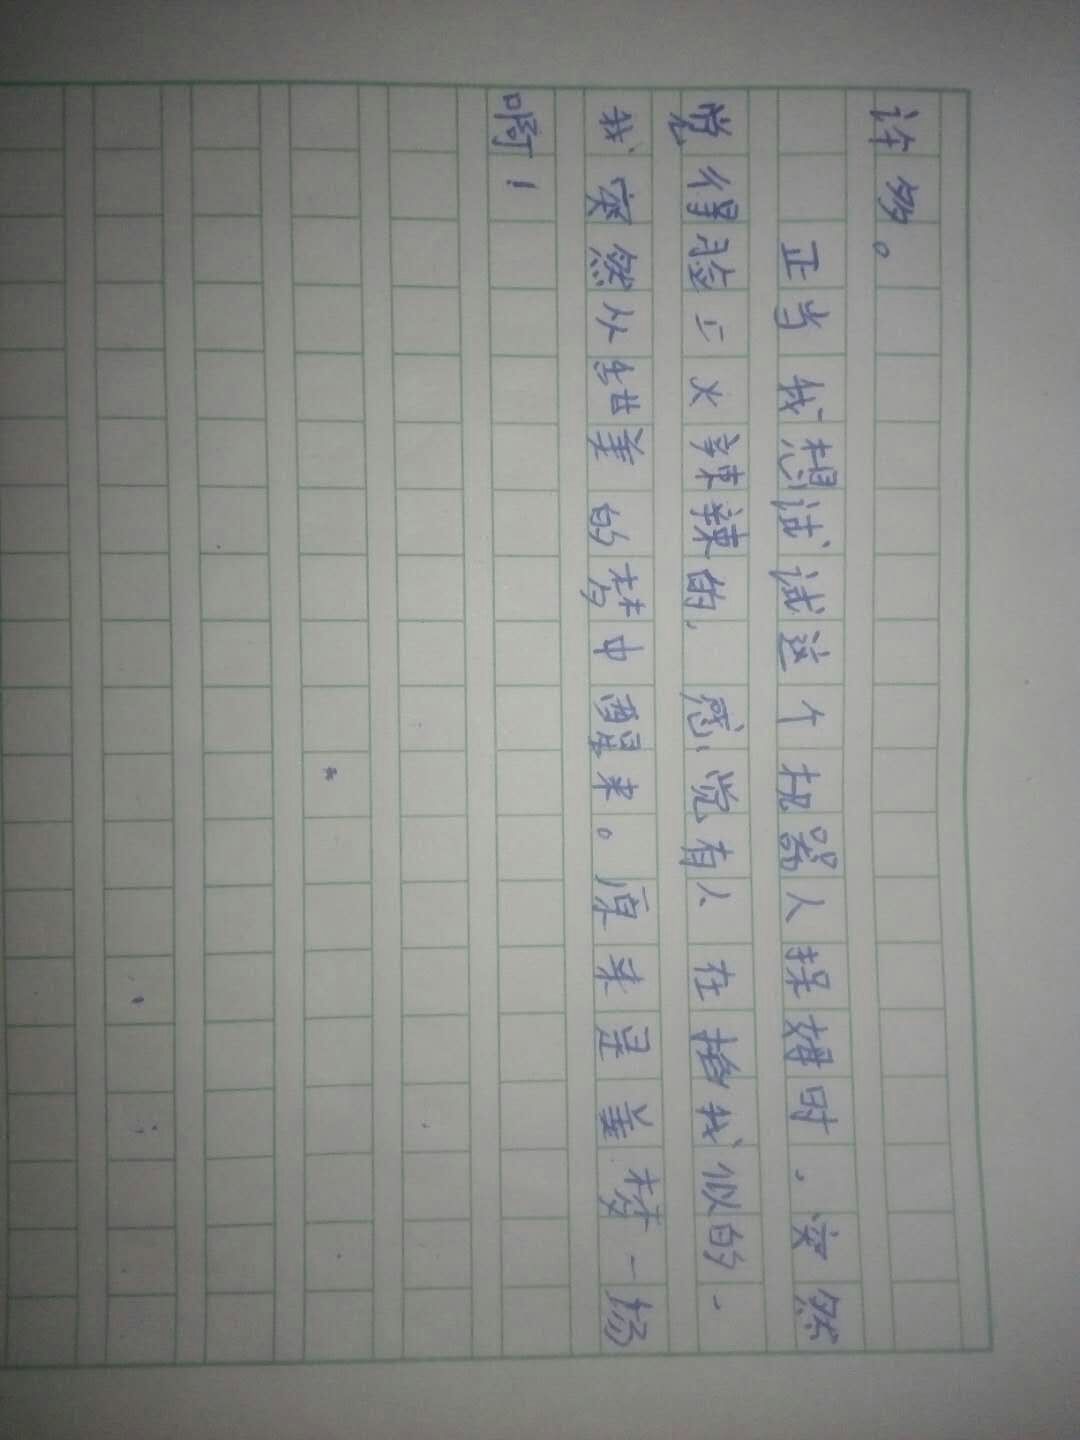 许多。
正当我想试试这个机器人保姆时，突然
觉得脸上火辣辣的，感觉有人在掐我似的，
我突然从甜美的梦中醒来。原来是美梦一场
啊！